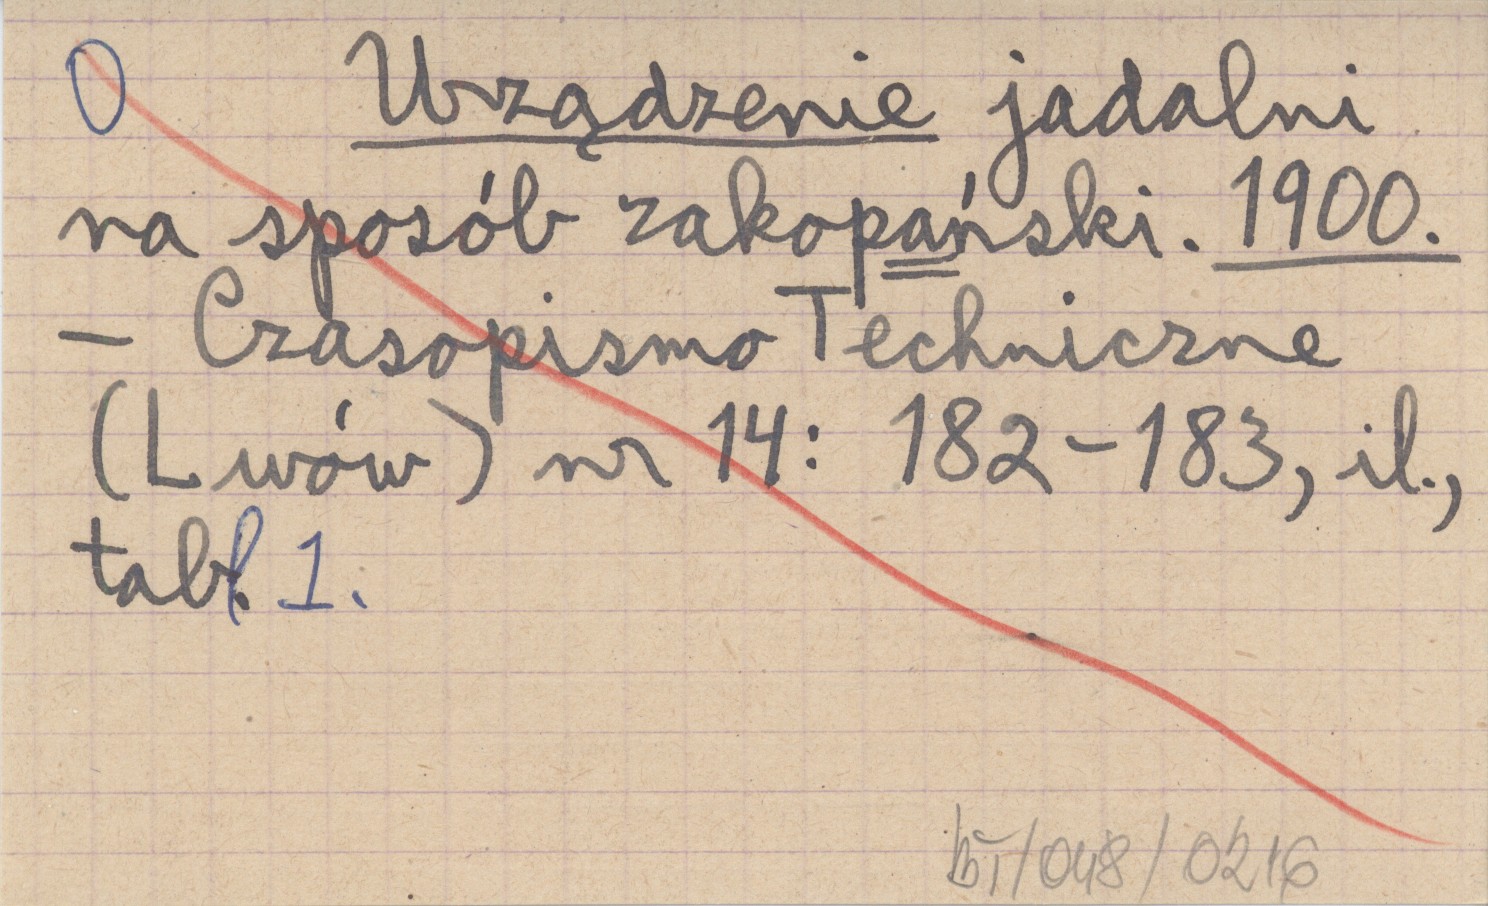 0 Urządzenie jadalni
na sposób zakopański. 1900.
- Czasopismo Techniczne
(Lwów) nr 14: 182-183, il.,
tabl. 1.
BT/048/0216